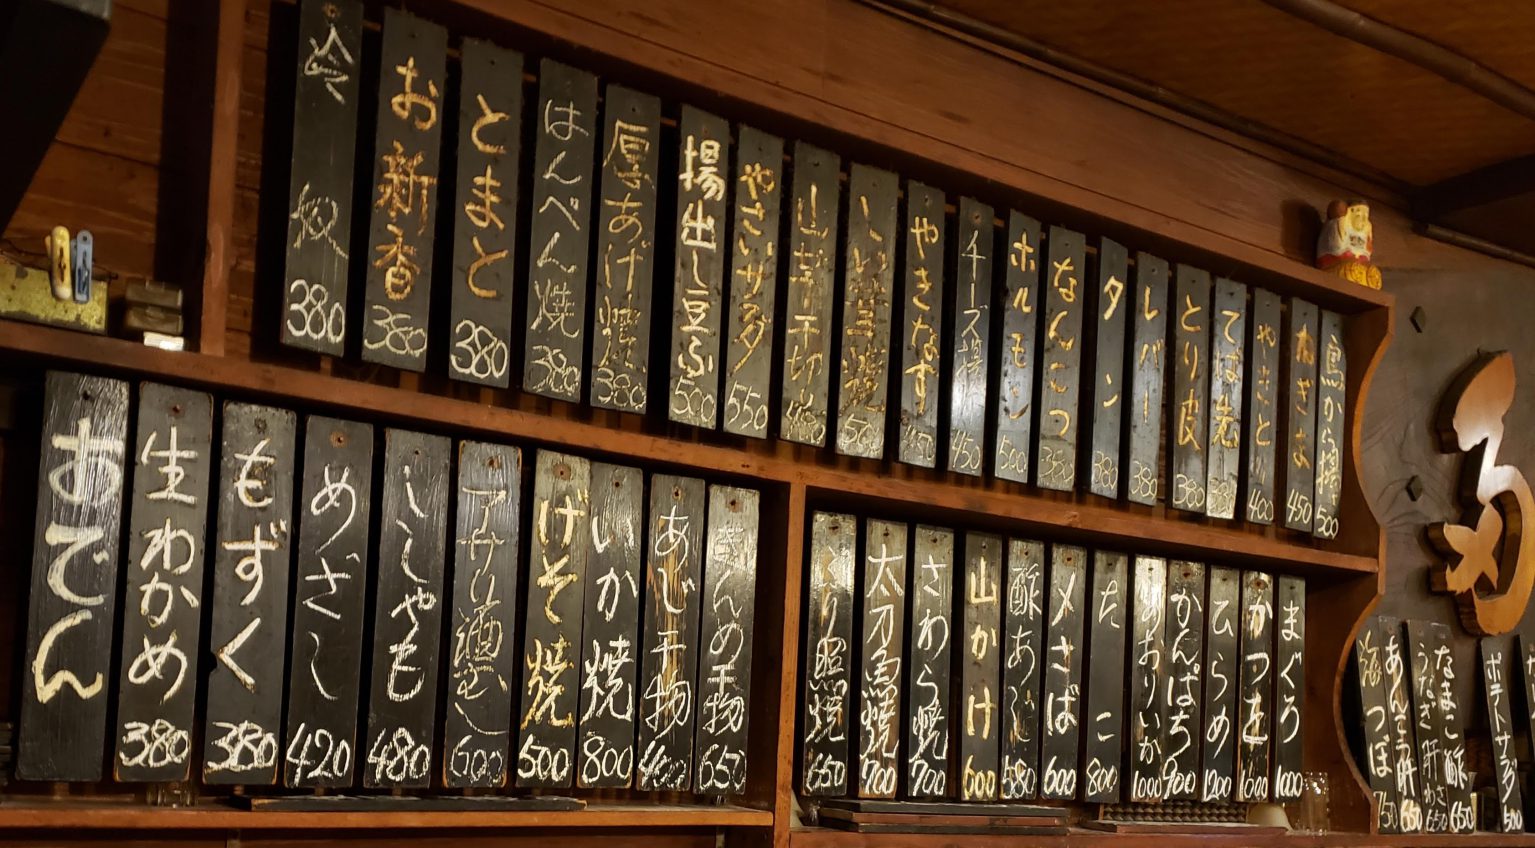 鳥から揚 500
ねぎま 450
やきとり 400
てば先 380
とり皮 380
レバー 380
タン 380
なんこつ 380
ホルモン 500
チーズ揚 450
やきなす 450
しい茸焼 500
山芋千切
やさいサラダ 550
揚出し豆ふ 500
厚あげ焼 380
はんぺん焼 380
とまと 380
お新香 380
冷奴 380
まぐろ 1000
かつを 1000
ひらめ 1200
かんぱち 900
あおりいか 1000
たこ 800
〆さば 600
酢あじ 580
山かけ 600
さわら焼 700
太刀魚焼 700
ぶり照焼 650
きんめ干物 650
あじ干物 400
いか焼 800
げそ焼 500
アサリ酒むし 600
ししゃも 480
めざし 420
もずく 380
生わかめ 380
おでん
ポテトサラダ 500
なまこ酢 650
うなぎ肝わさ 650
あんこう肝 650
海つぼ 750